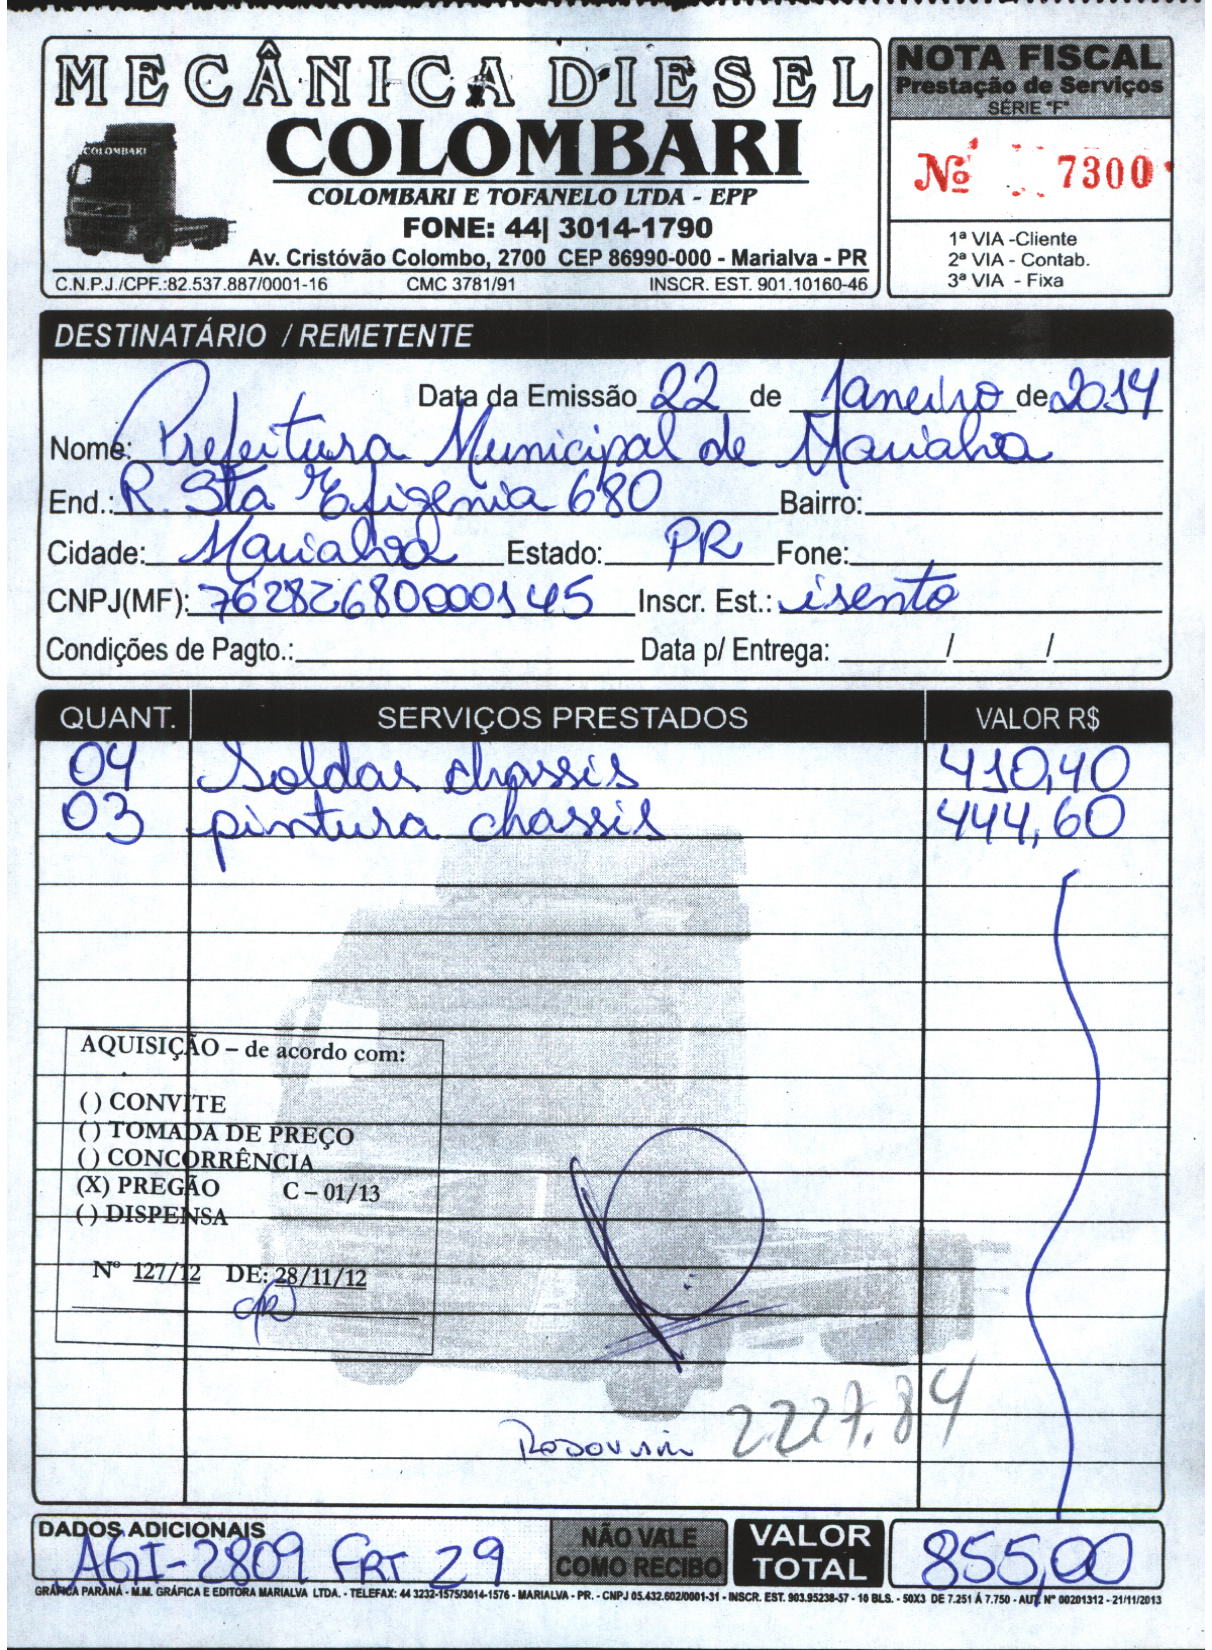 MECÂNICA DIESEL
COLOMBARI
COLOMBARI
COLOMBARI E TOFANELO LTDA - EPP
FONE: 44| 3014-1790
Av. Cristóvão Colombo, 2700 CEP 86990-000 - Marialva - PR
C.N.P.J./CPF.:82.537.887/0001-16 CMC 3781/91 INSCR. EST. 901.10160-46
NOTA FISCAL
Prestação de Serviços
SÉRIE "F"
Nº 7300
1ª VIA -Cliente
2ª VIA - Contab.
3ª VIA - Fixa
DESTINATÁRIO / REMETENTE
Data da Emissão 22 de Janeiro de 2014
Nome: Prefeitura Municipal de Marialva
End.: R. Sta Efigenia 680 Bairro:
Cidade: Marialva Estado: PR Fone:
CNPJ(MF): 76282680000145 Inscr. Est.: isento
Condições de Pagto.: Data p/ Entrega: / /
QUANT. SERVIÇOS PRESTADOS VALOR R$
04 Soldas chassis 410,40
03 pintura chassis 444,60
AQUISIÇÃO – de acordo com:
( ) CONVITE
( ) TOMADA DE PREÇO
( ) CONCORRÊNCIA
(X) PREGÃO C – 01/13
( ) DISPENSA
Nº 127/12 DE: 28/11/12
2227.84
DADOS ADICIONAIS
AGI-2809 FRT 29
NÃO VALE
COMO RECIBO
VALOR
TOTAL
855,00
GRÁFICA PARANÁ - M.M. GRÁFICA E EDITORA MARIALVA LTDA. - TELEFAX: 44 3232-1575/3014-1576 - MARIALVA - PR. - CNPJ 05.432.602/0001-31 - INSCR. EST. 903.95238-57 - 10 BLS. - 50X3 DE 7.251 Á 7.750 - AUT. Nº 00201312 - 21/11/2013